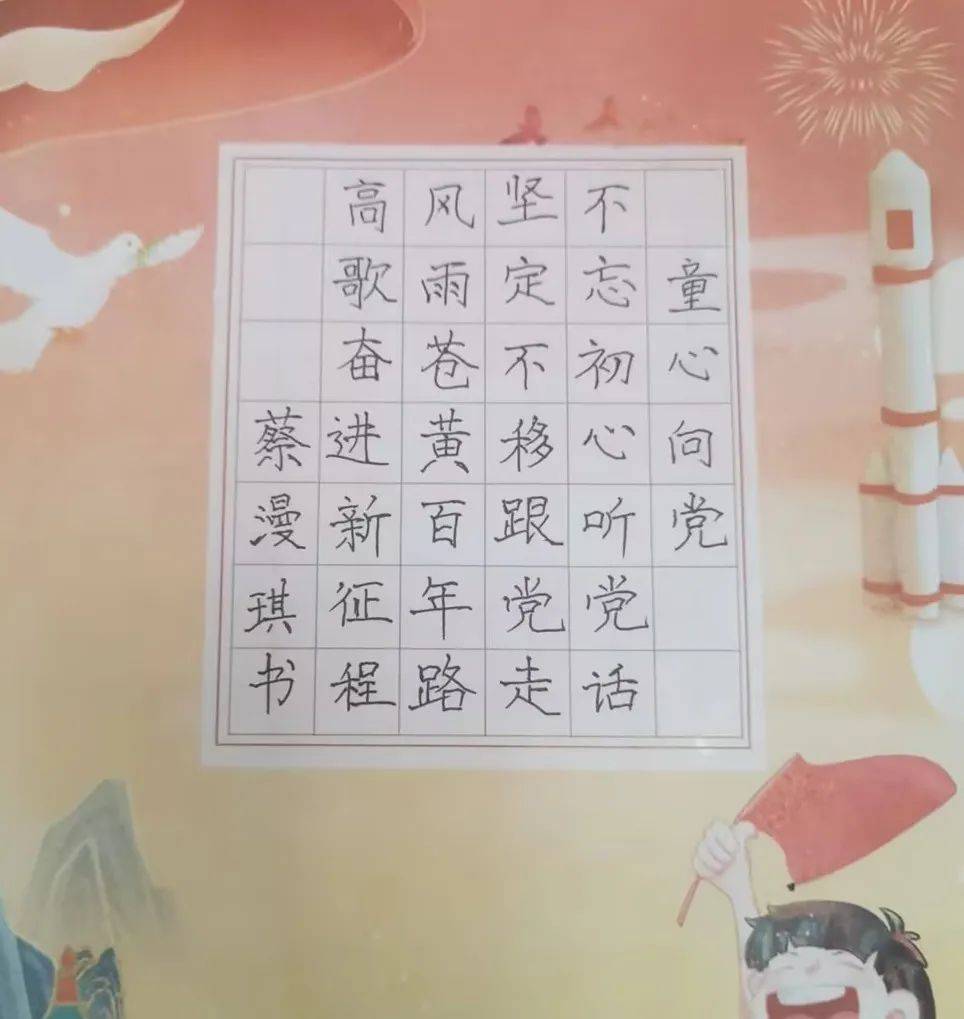 童心向党
不忘初心听党话
坚定不移跟党走
风雨苍黄百年路
高歌奋进新征程
蔡漫琪书